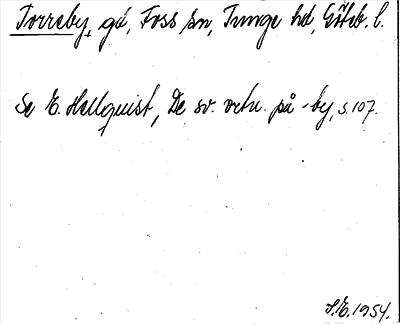 Torreby, gd, Foss sn, Tunge hd, Göteb. l.
Se E. Hellquist, De sv. ortn. på -by, s. 107.
S.E. 1954.